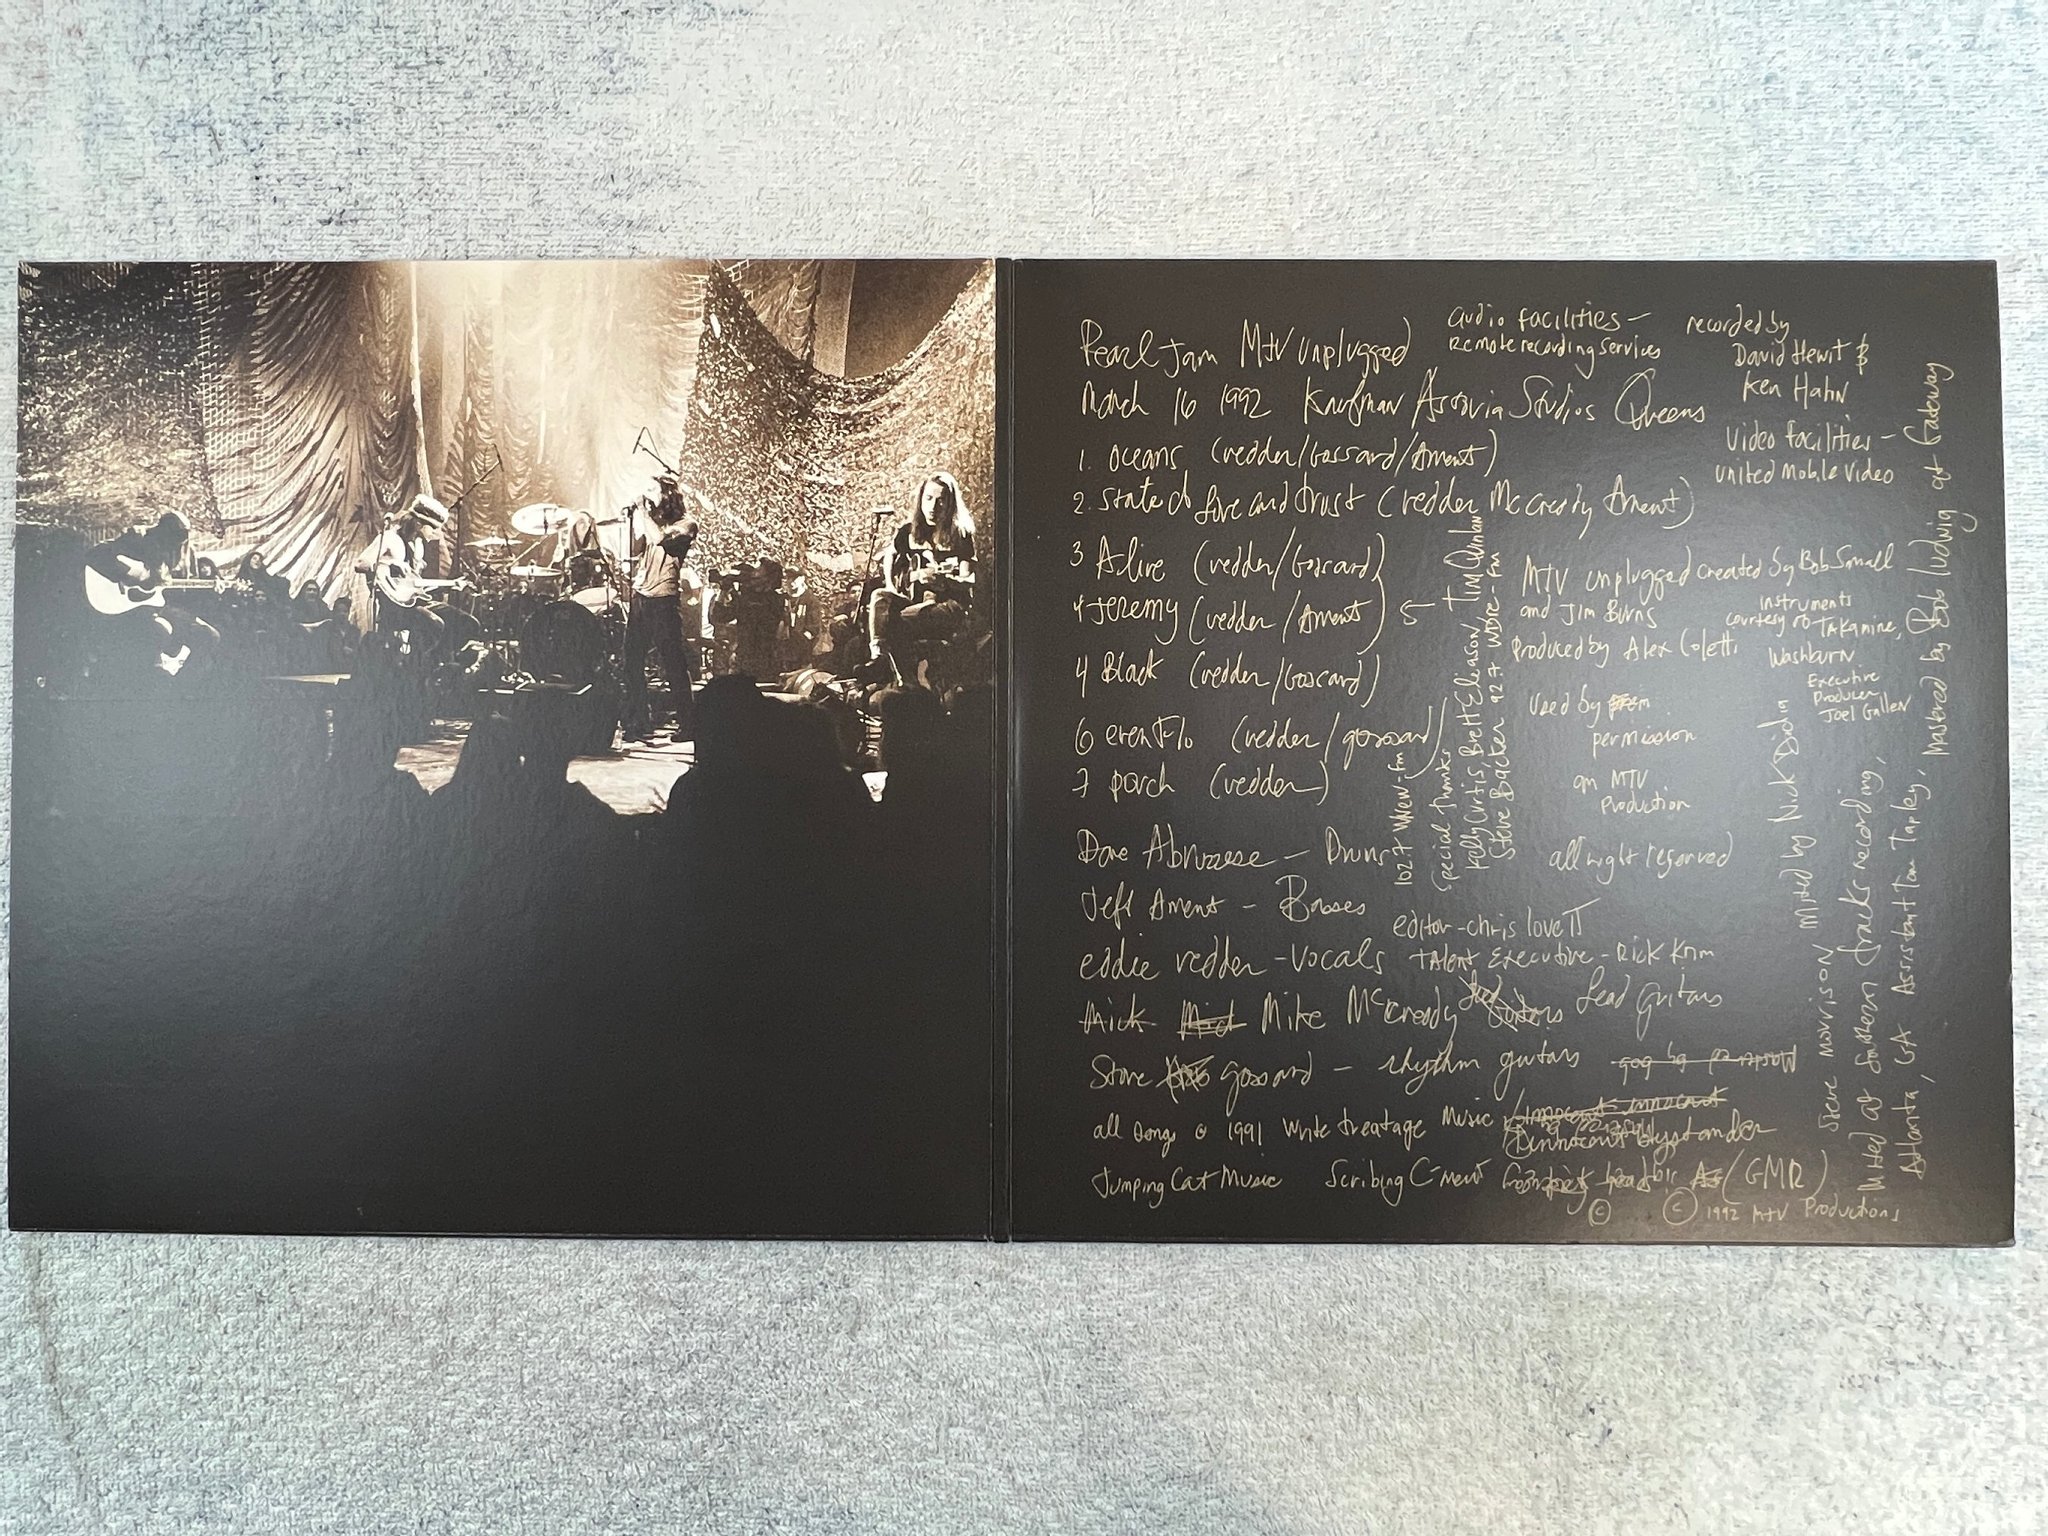 Pearl Jam MTV unplugged
March 16 1992 Kaufman Astoria Studios Queens
1. oceans (vedder/Gossard/Ament)
2. state of love and trust (vedder McCready Ament)
3 Alive (vedder/Gossard)
4 Jeremy (vedder/Ament)
4 Black (vedder/Gossard)
6 evenflo (vedder/gossard)
7 porch (vedder)
Dave Abruzzese — Drums
Jeff Ament - Basses
eddie vedder - vocals
Mick Mike McCready Lead Guitars
Stone gossard — rhythm guitars
all songs © 1991 Write treatage Music
innocent bystander
Jumping Cat Music Scribing C-ment (GMR)
© © 1992 MTV Productions
audio facilities —
remote recording services
recorded by
David Hewit &
Ken Hahn
video facilities —
united Mobile Video
MTV unplugged created by Bob Small
and Jim Burns
Produced by Alex Coletti
instruments
courtesy of Takamine,
Washburn
Executive
Producer
Joel Gallen
used by
permission
an MTV
Production
all right reserved
editor - chris loveTT
Talent Executive - Rick Krim
102.7 WNEW-fm
special thanks
Kelly Curtis, Brett Eliason Tim Quinlan
Steve Backer 92.7 WDRE-fm
Mixed by Nick Didia
Steve Morrison
Mixed at Southern Tracks recording,
Atlanta, GA Assistant Tom Tapley.
Mastered by Bob Ludwig at Gateway